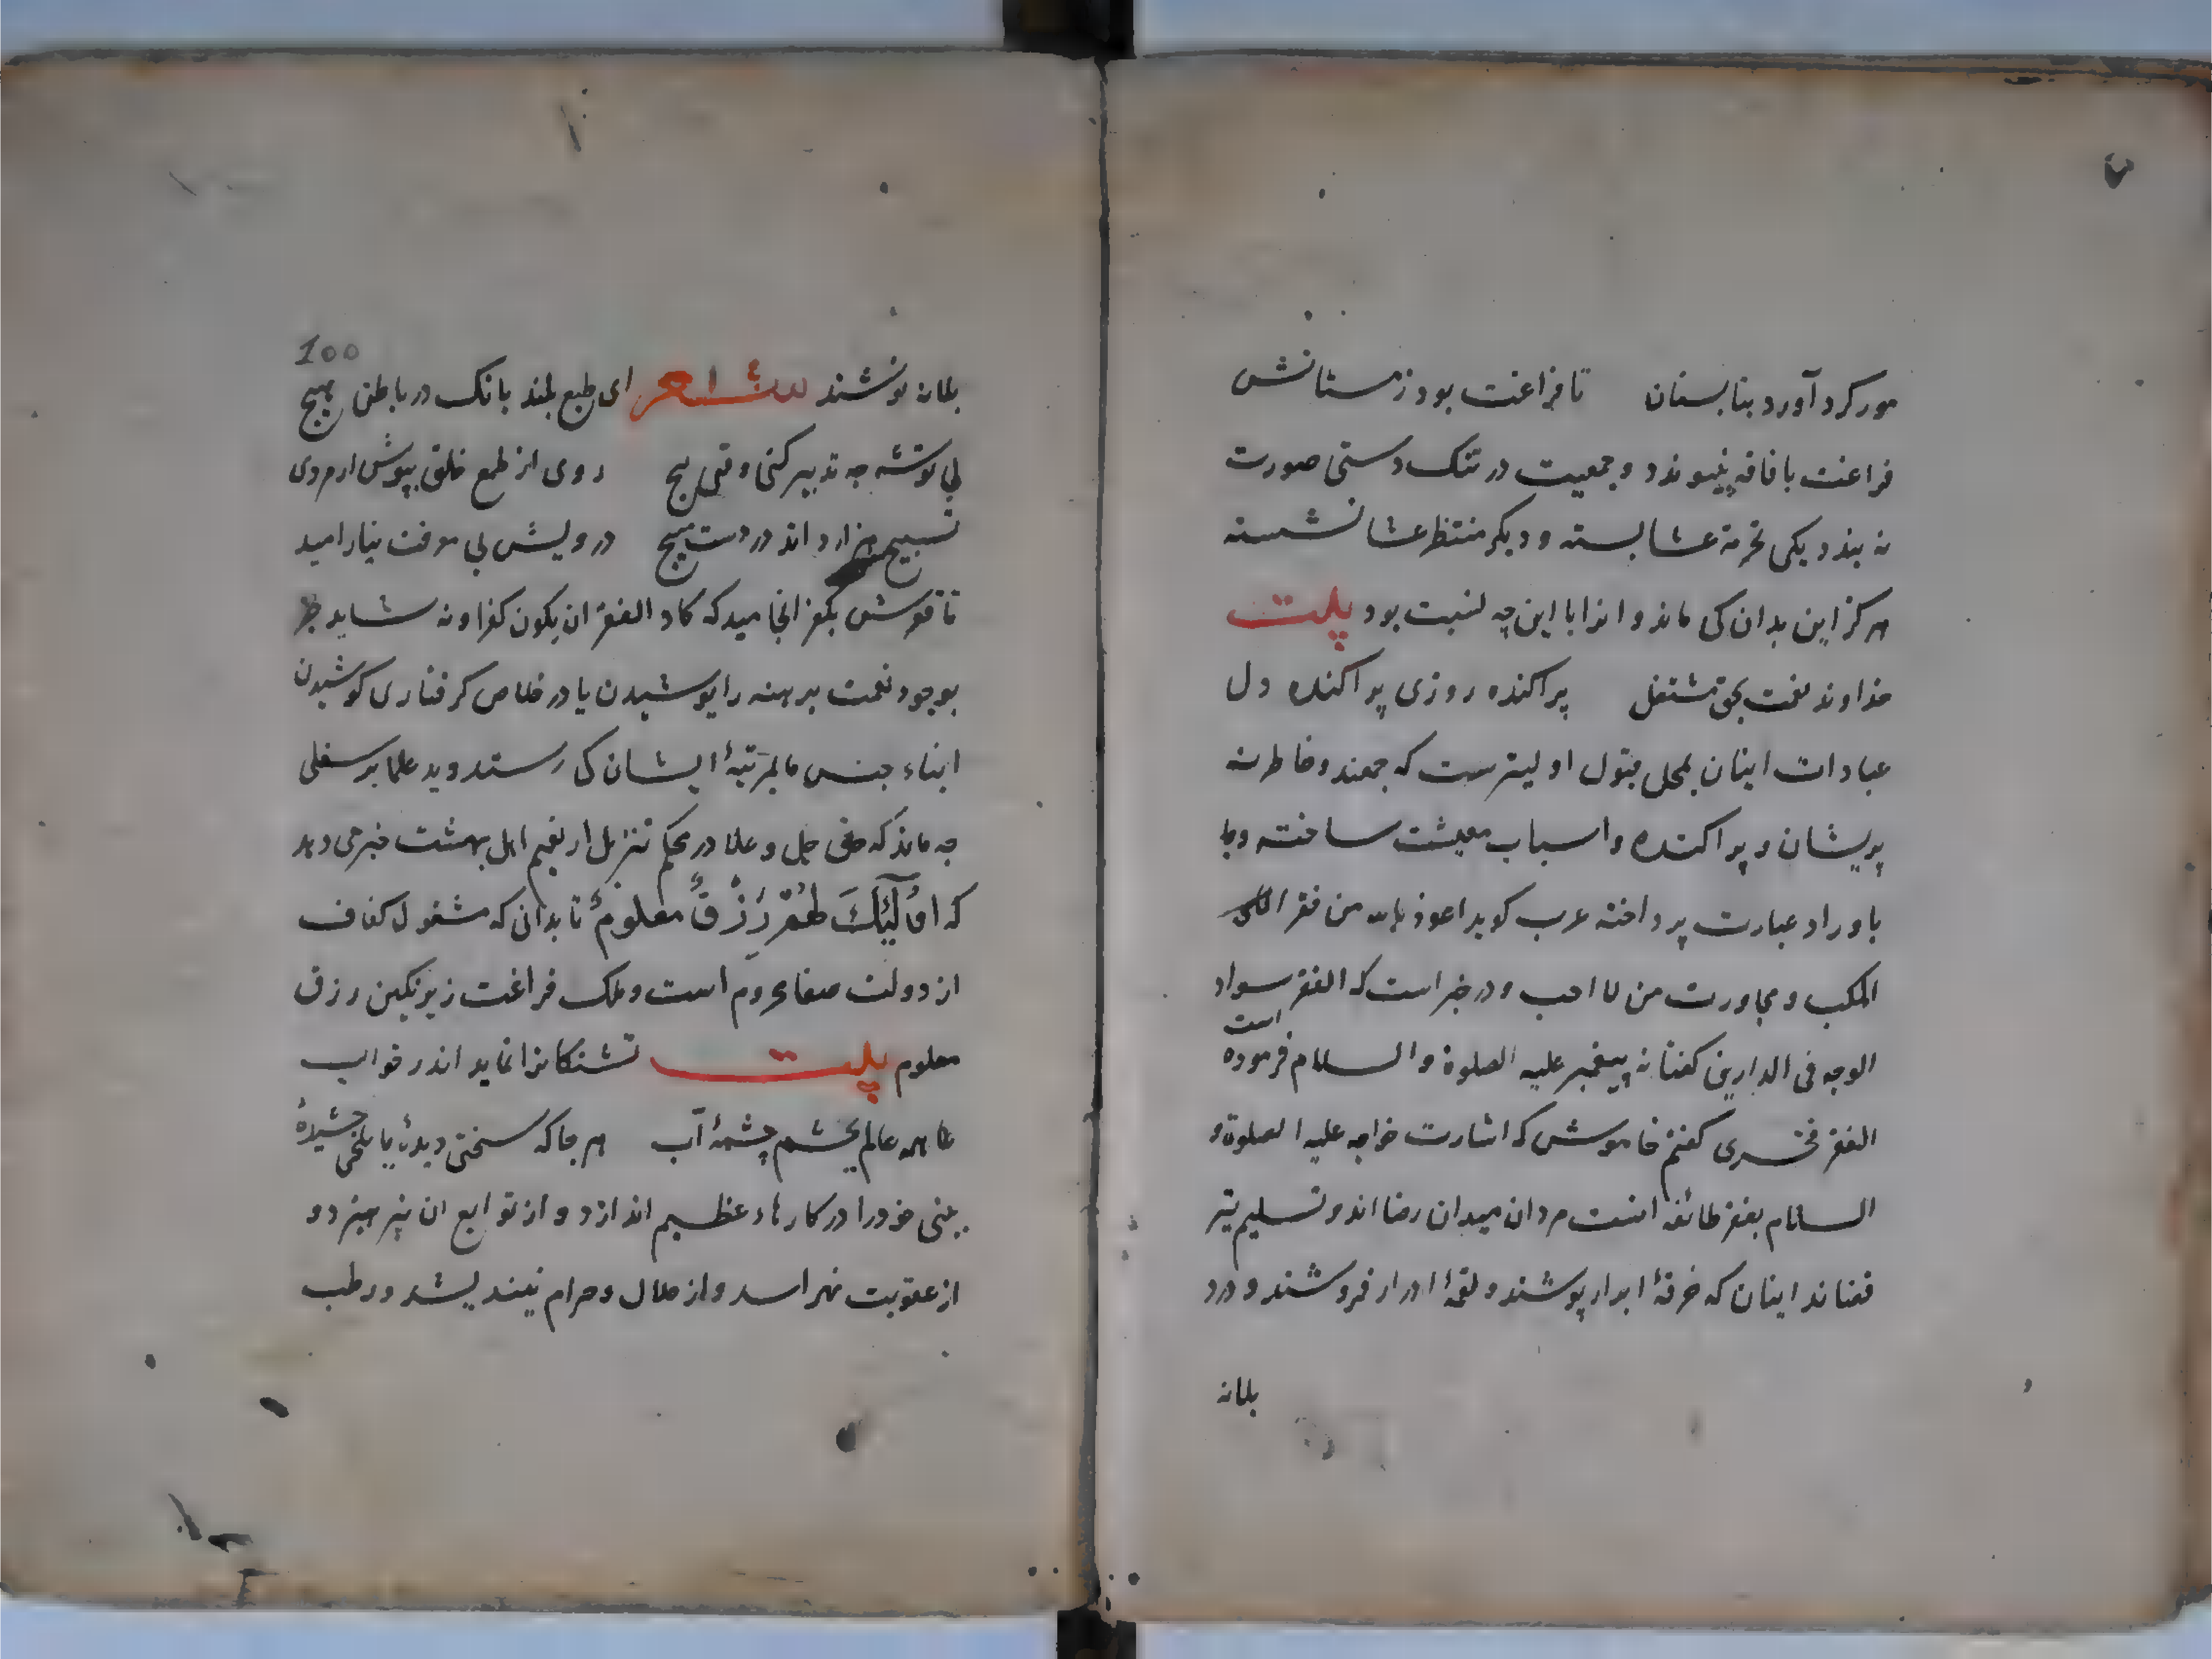 مور کرد آورد بتابستان تا فراغت بود زمستانش
فراغت با فاقه نپیوندد و جمعیت در تنک دستی صورت
نه بندد یکی تحرمهٔ عشا بسته و دیکر منتظر عشا نشسته
هرکز این بدان کی ماند و انرا با این چه نسبت بود بیت
خداوند نعمت بحق مشتغل پراکنده روزی پراکنده دل
عبادات اینان بمحل قبول اولیترست که جمعند و خاطر نه
پریشان و پراکنده و اسباب معیشت ساخته و با
باوراد عبارت پرداخته عرب کوید اعوذ بالله من فقر
المکب و مجاورت من لا احب و در خبر است که الفقر سواد
الوجه فی الدارین کفتا نه پیغمبر علیه الصلوة والسلام فرموده است
الفقر فخری کفتم خاموش که اشارت خواجه علیه الصلوة و
السلام بفقر طائفه است مردان میدان رضا اند و تسلیم تیر
قضا ند اینان که خرقهٔ ابرار پوشند و لقمهٔ ادرار فروشند و درد
بلمانه
100
بلمانه نوشند شعر ای طبع بلند بانک در باطن هیچ
بی توشه چه تدبیر کنی وقت بیچ روی از طمع خلق بپوش ار مردی
تسبیح هزار دانه در دست مپیچ درویش بی معرفت نیارامید
تا فقرش بکفر انجامید که کاد الفقر ان یکون کفرا و نه شاید جز
بوجود نعمت برهنه را پوشیدن یا در خلاص کرفتاری کوشیدن
ابناء جنس ما بمرتبهٔ ایشان کی رسند و ید علیا بید سفلی
چه ماند که حق جل و علا در محکم تنزیل از نعیم اهل بهشت خبر می دهد
که اولَئِكَ لَهُمْ رِزْقٌ معلومٌ تا بدانی که مشغول کفاف
از دولت صفا محروم است و ملک فراغت زیر نکین رزق
معلوم بیت تشنکانرا نماید اندر خواب
همه عالم بچشم چشمهٔ آب هر جا که سختی دیدهٔ یا تلخی چشیدهٔ
بینی خود را در کارهاء عظیم اندازد و از توابع ان نپرهیزد و
از عقوبت نهراسد و از حلال و حرام نیندیشد و رطب